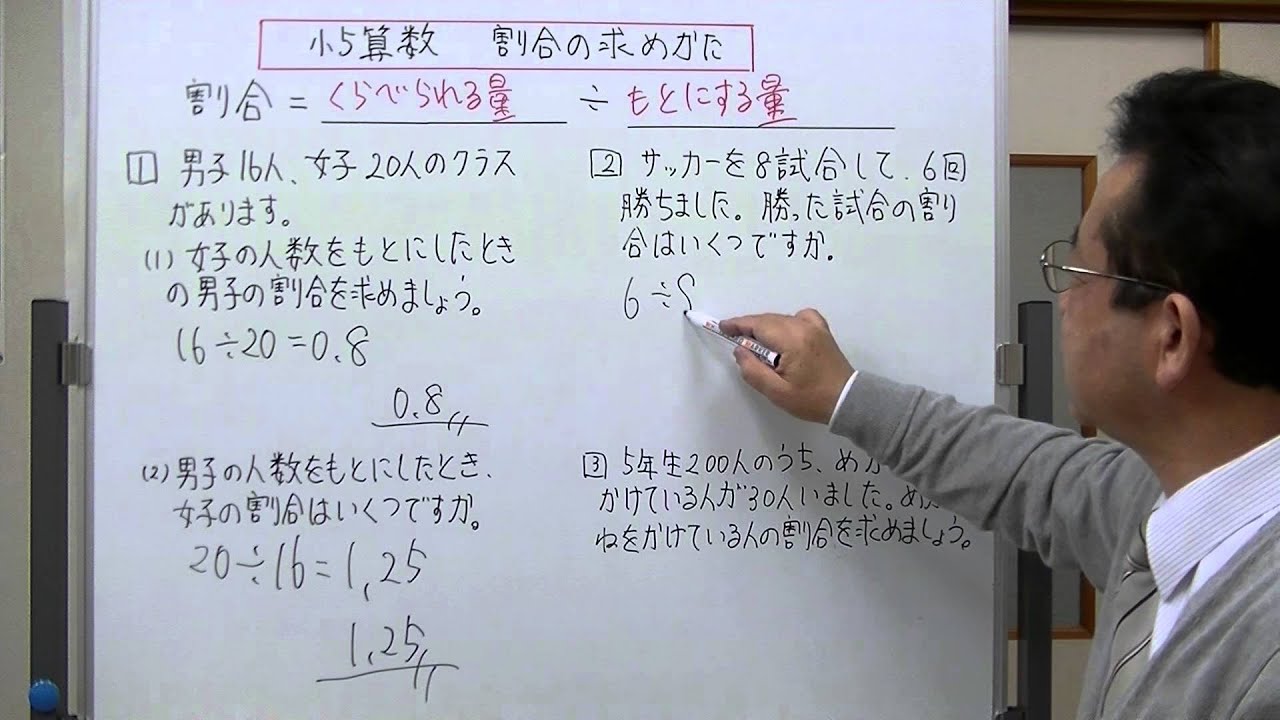 小5算数 割合の求めかた
割合 = くらべられる量 ÷ もとにする量
1 男子16人、女子20人のクラス
があります。
(1) 女子の人数をもとにしたとき
の男子の割合を求めましょう。
16÷20=0.8
0.8
(2) 男子の人数をもとにしたとき、
女子の割合はいくつですか。
20÷16=1,25
1,25
2 サッカーを8試合して、6回
勝ちました。勝った試合の割り
合はいくつですか。
6÷
3 5年生200人のうち、めが
かけている人が30人いました。め
ねをかけている人の割合を求めましょう。
MARKER